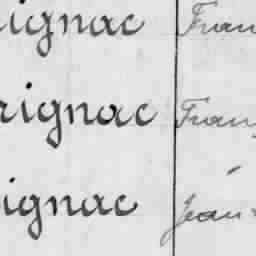 rignac Fran
rignac Franç
ignac Jean